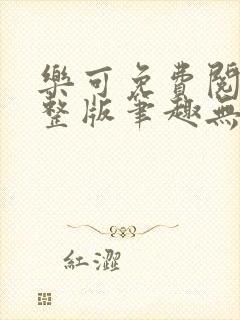 樂可免費閱
整版筆趣無
紅澀